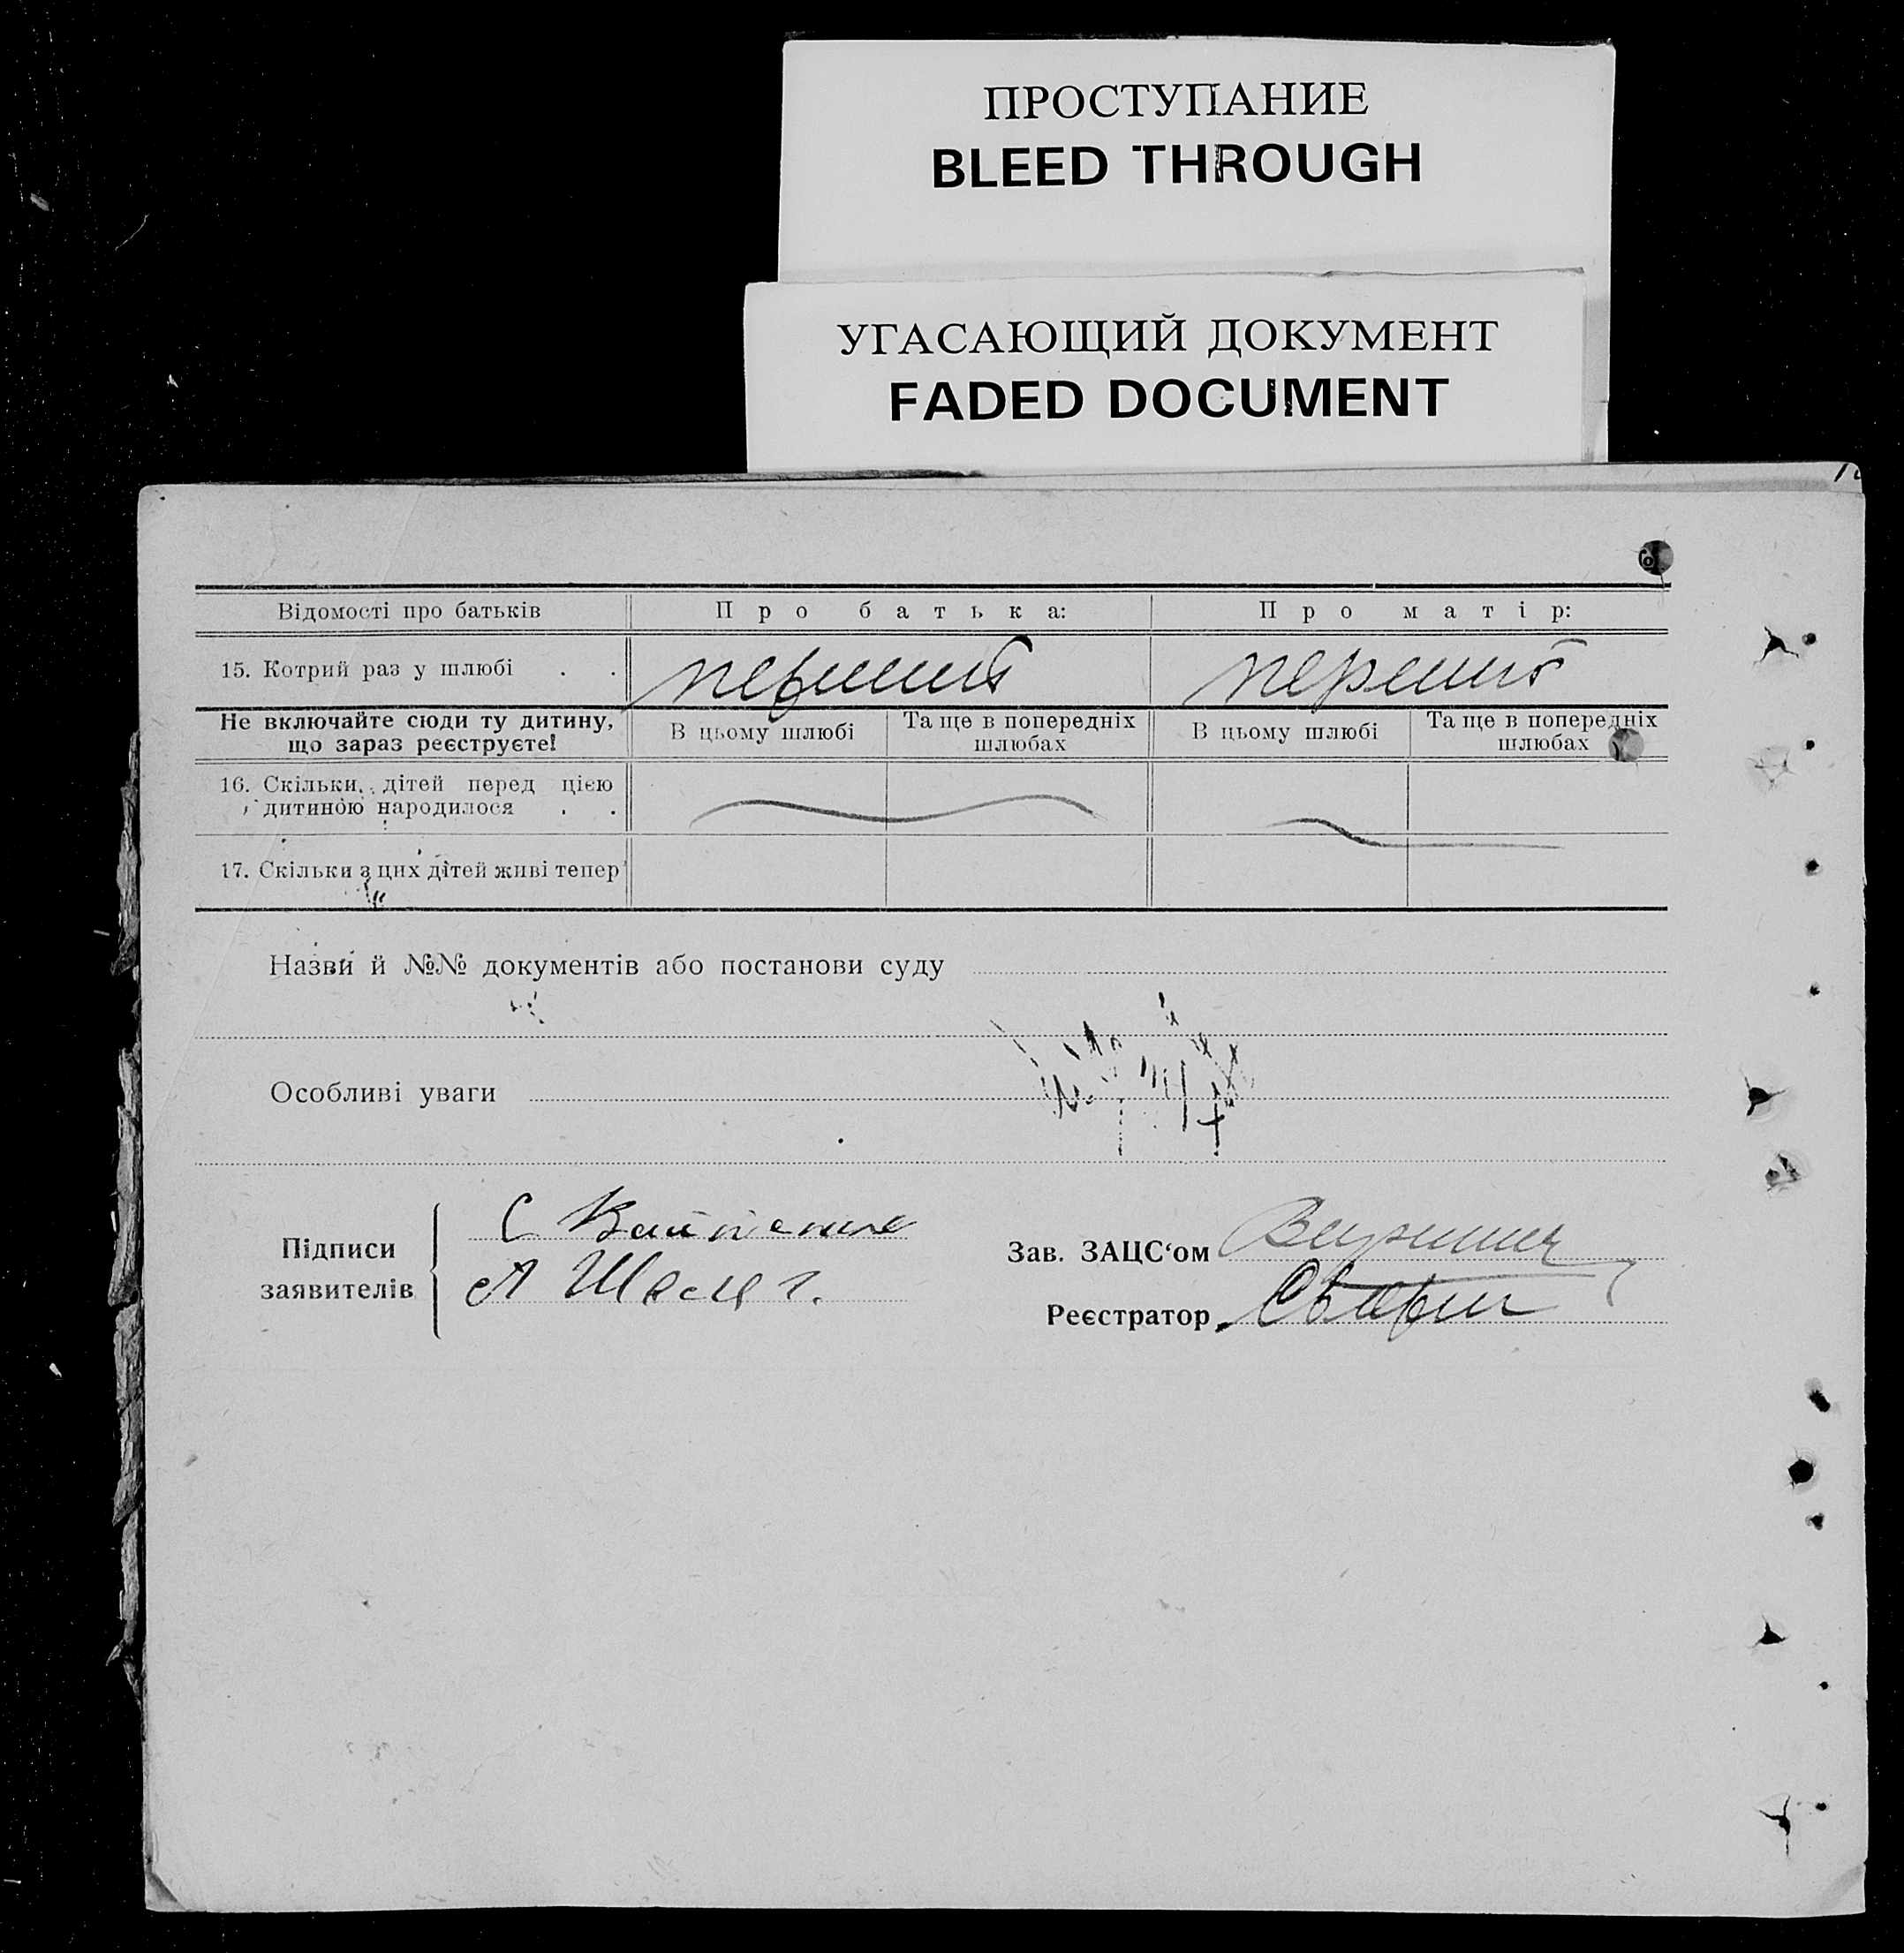 ПРОСТУПАНИЕ
BLEED THROUGH
УГАСАЮЩИЙ ДОКУМЕНТ
FADED DOCUMENT
Відомості про батьків Про батька: Про матір:
15. Котрий раз у шлюбі . . перший перший
Не включайте сюди ту дитину, що зараз реєструєте! В цьому шлюбі Та ще в попередніх шлюбах В цьому шлюбі Та ще в попередніх шлюбах
16. Скільки дітей перед цією
дитиною народилося . .
17. Скільки з цих дітей живі тепер
Назви й №№ документів або постанови суду
Особливі уваги
Підписи
заявителів
С
А
Зав. ЗАЦС‘ом
Реєстратор